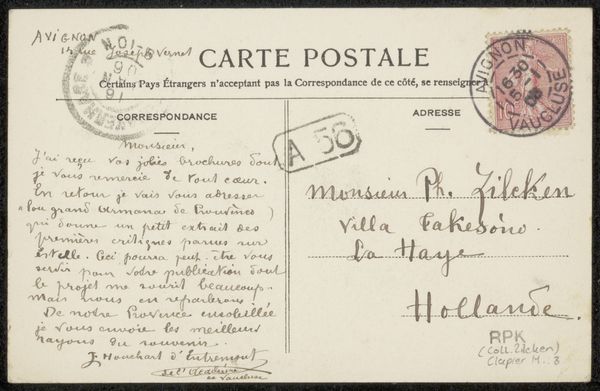 AVIGNON
rue Joseph Vernet
CARTE POSTALE
Certains Pays Étrangers n'acceptant pas la Correspondance de ce côté, se renseigner
CORRESPONDANCE
ADRESSE
AVIGNON
16 30
VAUCLUSE
A 56
Monsieur,
J'ai reçu vos jolies brochures dont
je vous remercie de tout cœur.
En retour je vais vous adresser
"lou grand Armana de Prouvènço)
qui donne un petit extrait des
premières critiques parues sur
Estelle. Ceci pourra peut-être vous
servir pour votre publication dont
le projet me sourit beaucoup.
Mais nous en reparlerons.
De notre Provence ensoleillée
je vous envoie les meilleurs
rayons du souvenir.
J. Houchart d'Entremont
de l'Académie
de Vaucluse
Monsieur Ph. Zilcken
Villa
La Haye
Hollande
RPK
(Coll. Zilcken)
Clapier M..3